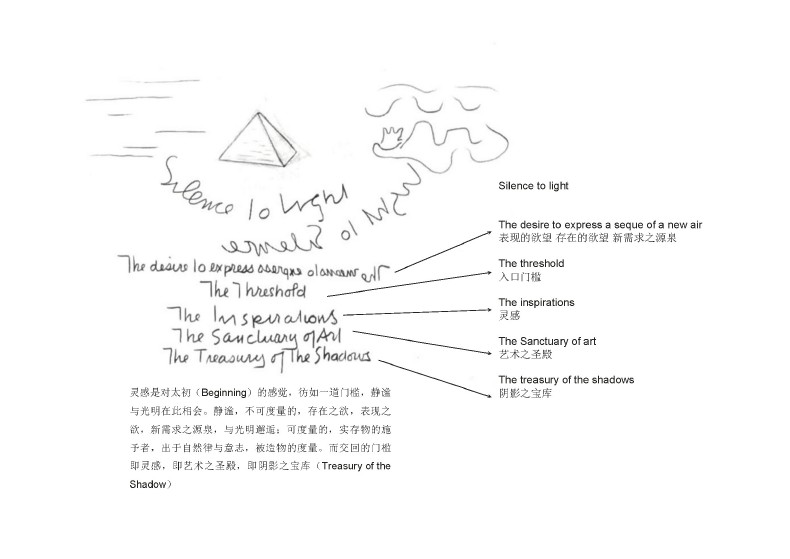 Silence to Light
Light to Silence
The desire to express
The Threshold
The Inspirations
The Sanctuary of Art
The Treasury of The Shadows
Silence to light
The desire to express a seque of a new air
表现的欲望 存在的欲望 新需求之源泉
The threshold
入口门槛
The inspirations
灵感
The Sanctuary of art
艺术之圣殿
The treasury of the shadows
阴影之宝库
灵感是对太初（Beginning）的感觉，彷如一道门槛，静谧
与光明在此相会。静谧，不可度量的，存在之欲，表现之
欲，新需求之源泉，与光明邂逅；可度量的，实存物的施
予者，出于自然律与意志，被造物的度量。而交回的门槛
即灵感，即艺术之圣殿，即阴影之宝库（Treasury of the
Shadow）